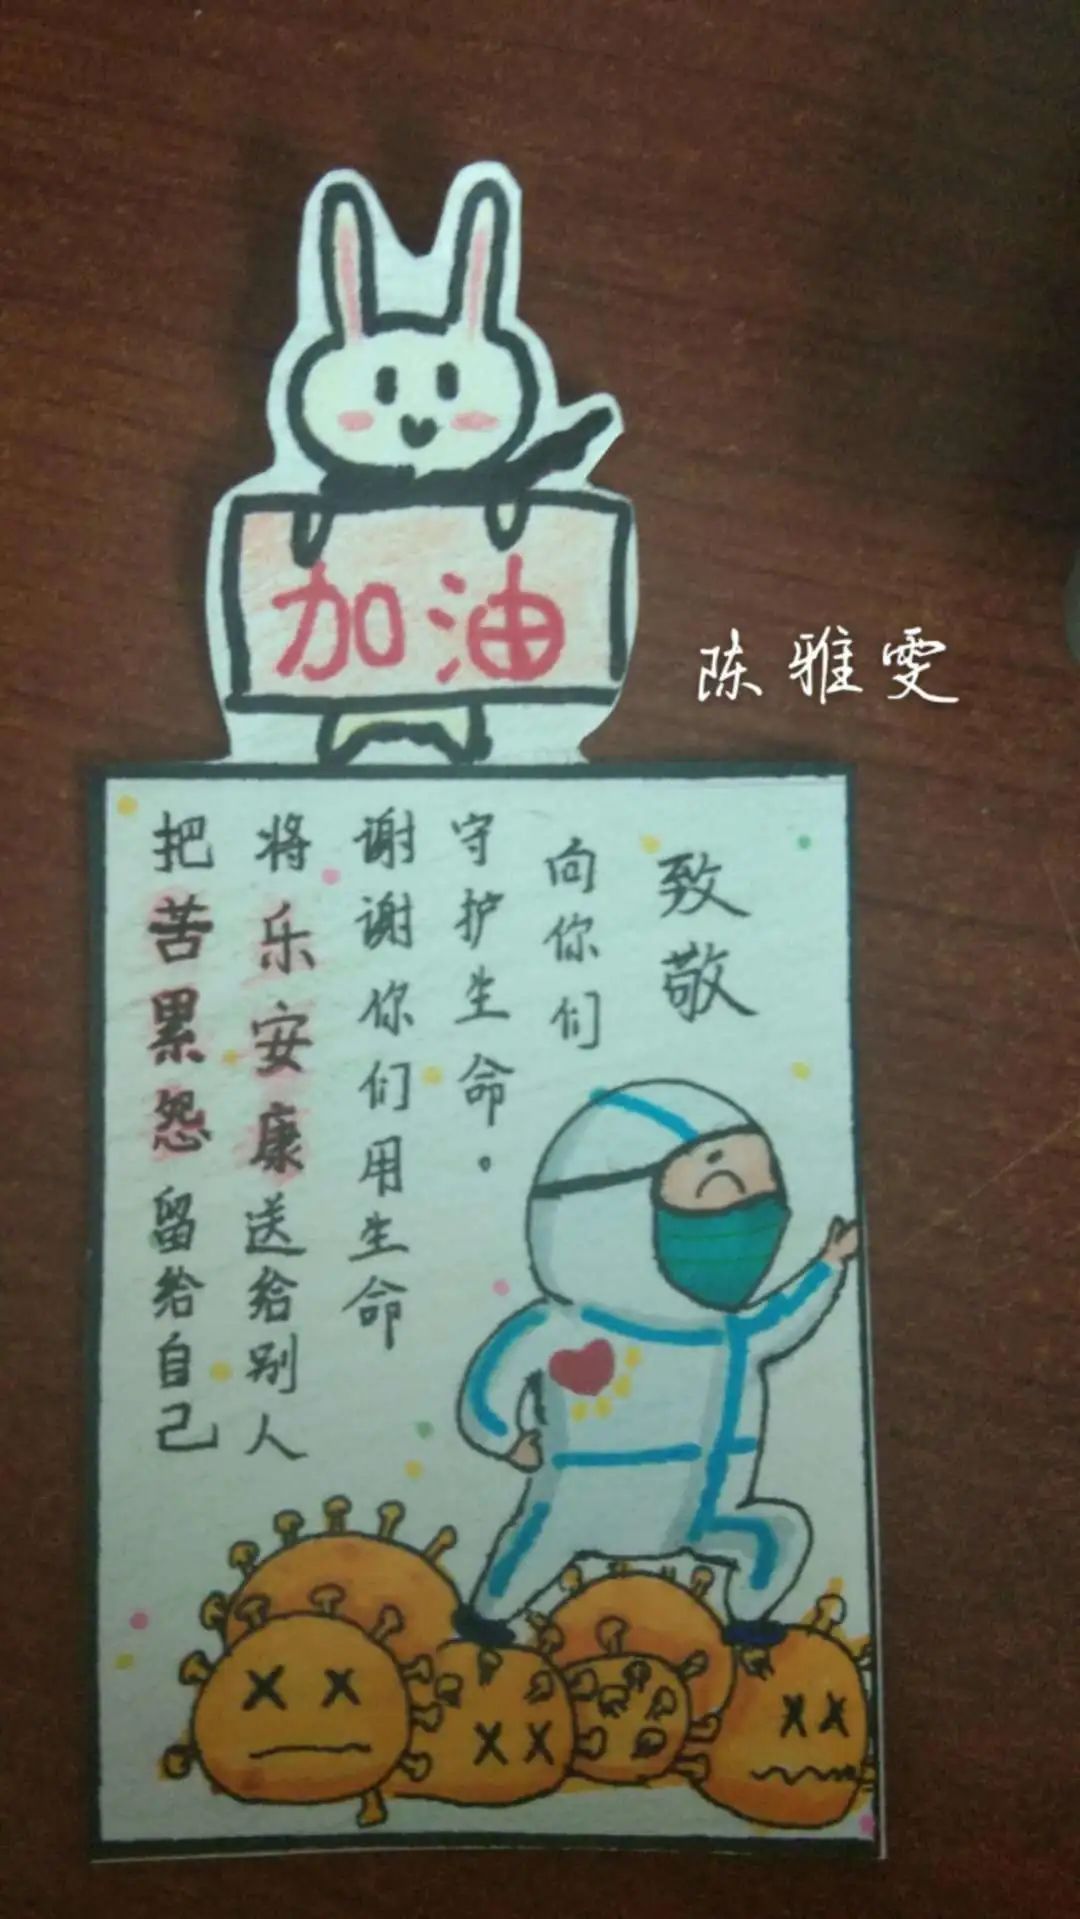 加油
陈雅雯
致敬
向你们
守护生命。
谢谢你们用生命
将乐安康送给别人
把苦累怨留给自己